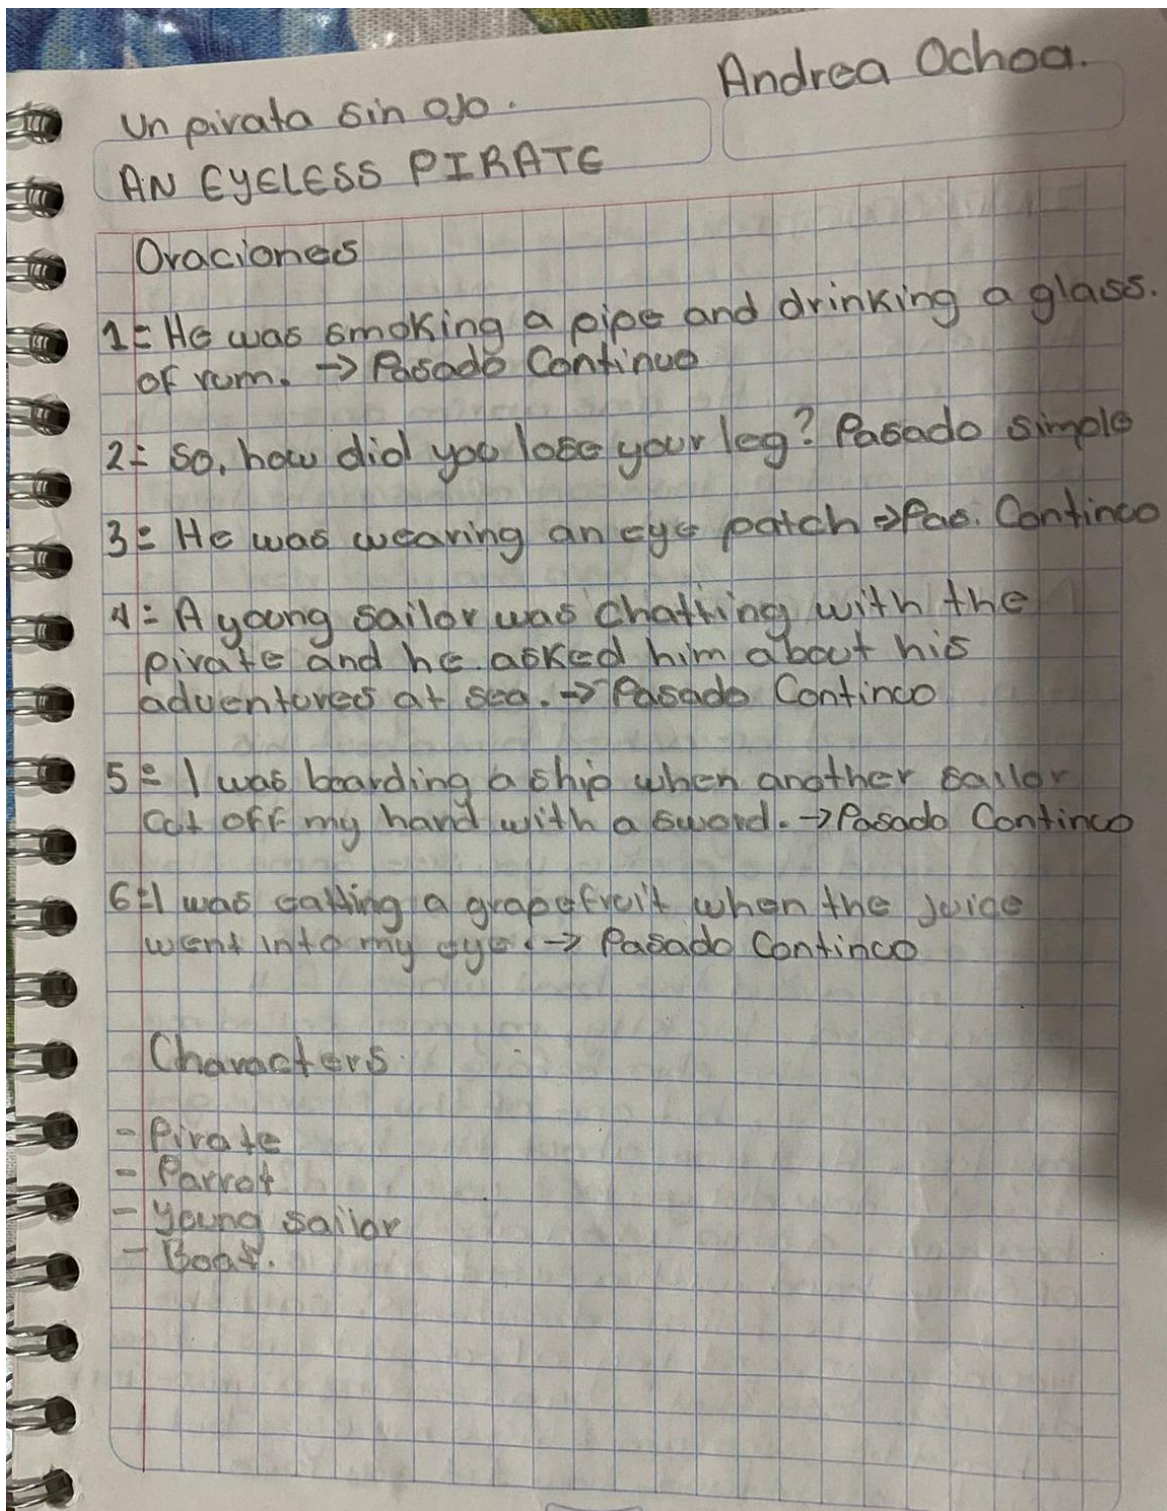 Andrea Ochoa.
Un pirata sin ojo.
AN EYELESS PIRATE
Oraciones
1= He was smoking a pipe and drinking a glass.
of rum. → Pasado Continuo
2= So, how did you lose your leg? Pasado simple
3= He was wearing an eye patch → Pas. Continuo
4= A young sailor was chatting with the
pirate and he asked him about his
adventures at sea. → Pasado Continuo
5= I was boarding a ship when another sailor
cut off my hand with a sword. → Pasado Continuo
6= I was a grapefruit when the juice
went into my eye. → Pasado Continuo
Characters
- Pirate
- Parrot
- Young sailor
-